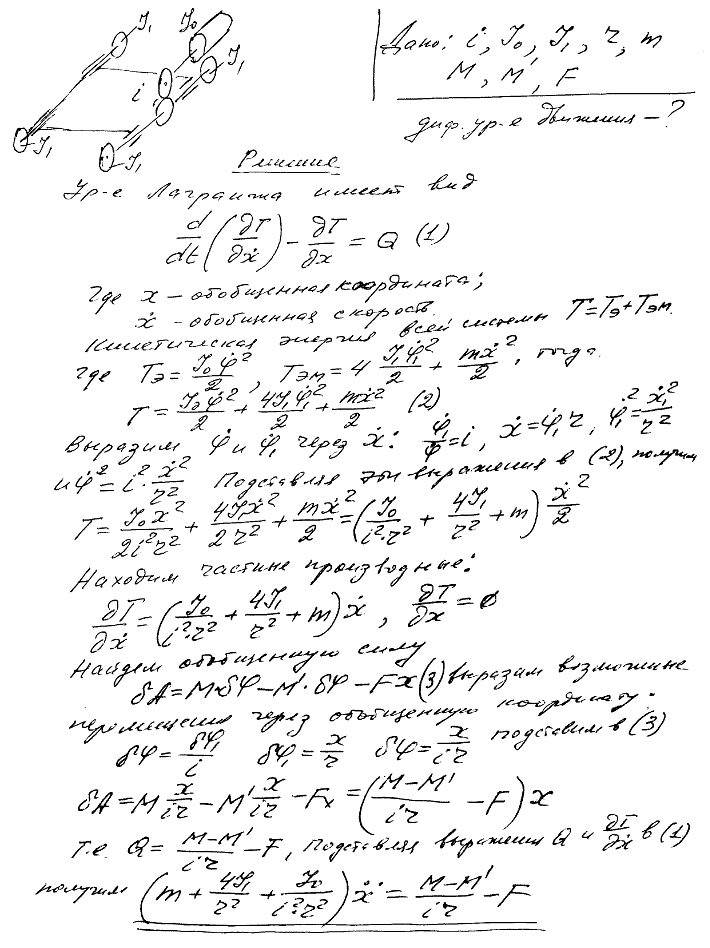 J₁ J₀ J₁ i J₁ J₁
Дано: i, J₀, J₁, r, m
M, M', F
диф. ур-е движения – ?
Решение
Ур-е Лагранжа имеет вид
d/dt (∂T/∂ẋ) − ∂T/∂x = Q (1)
Где x – обобщенная координата;
ẋ – обобщенная скорость.
Кинетическая энергия всей системы T = Tэ + Tэм.
где Tэ = J₀φ̇²/2, Tэм = 4 J₁φ̇₁²/2 + mẋ²/2, тогда
T = J₀φ̇²/2 + 4J₁φ̇₁²/2 + mẋ²/2 (2)
Выразим φ̇ и φ̇₁ через ẋ: φ̇₁/φ̇ = i, ẋ = φ̇₁r, φ̇₁² = ẋ₁²/r²
и φ̇² = i² · ẋ²/r² Подставляя эти выражения в (2), получим
T = J₀ẋ²/2i²r² + 4J₁ẋ²/2r² + mẋ²/2 = (J₀/i²·r² + 4J₁/r² + m) ẋ²/2
Находим частные производные:
∂T/∂ẋ = (J₀/i²·r² + 4J₁/r² + m) ẋ, ∂T/∂x = 0
Найдем обобщенную силу
δA = M·δφ − M'·δφ − Fx (3) выразим возможные
перемещения через обобщенную координату.
δφ = δφ₁/i δφ₁ = x/r δφ = x/ir подставим в (3)
δA = M x/ir − M' x/ir − Fx = (M−M'/ir − F) x
Т.е. Q = M−M'/ir − F, Подставляя выражения Q и ∂T/∂ẋ в (1)
получим (m + 4J₁/r² + J₀/i²·r²) ẍ = M−M'/ir − F